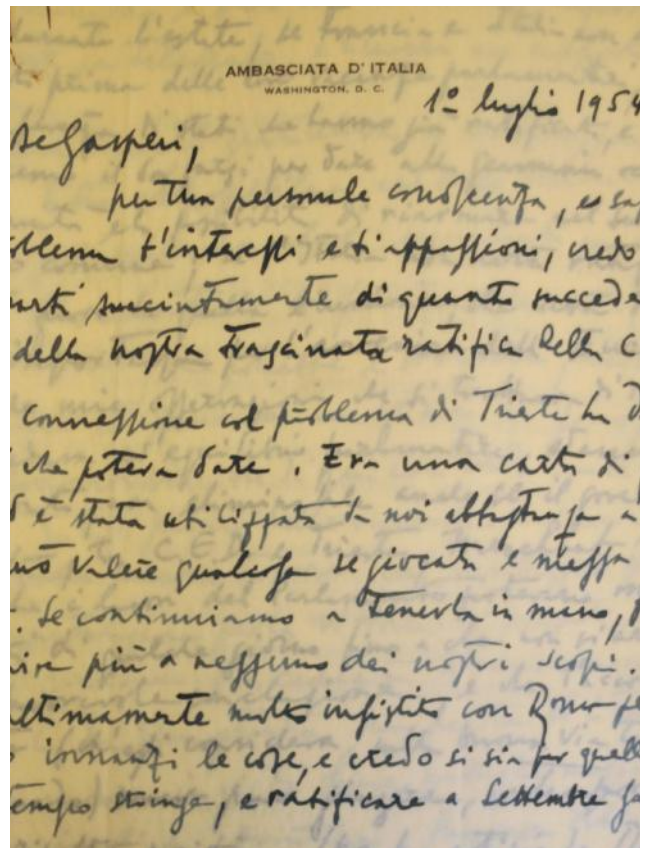 AMBASCIATA D'ITALIA
WASHINGTON, D. C.
1º luglio 1954
De Gasperi,
per tua personale conoscenza, e sa
blema t'interessi e ti appassioni, credo
arti succintamente di quanto succede
della nostra trascinata ratifica della C
connessione col problema di Trieste ha d
che poteva dare. Era una carta di
è stata utilizzata da noi abbastanza a
uò valere qualcosa se giocata e messa
. Se continuiamo a tenerla in mano,
ire più a nessuno dei nostri scopi.
ltimamente molto insistito con Roma pe
innanzi le cose, e credo si sia per quell
empo stringe, e ratificare a Settembre